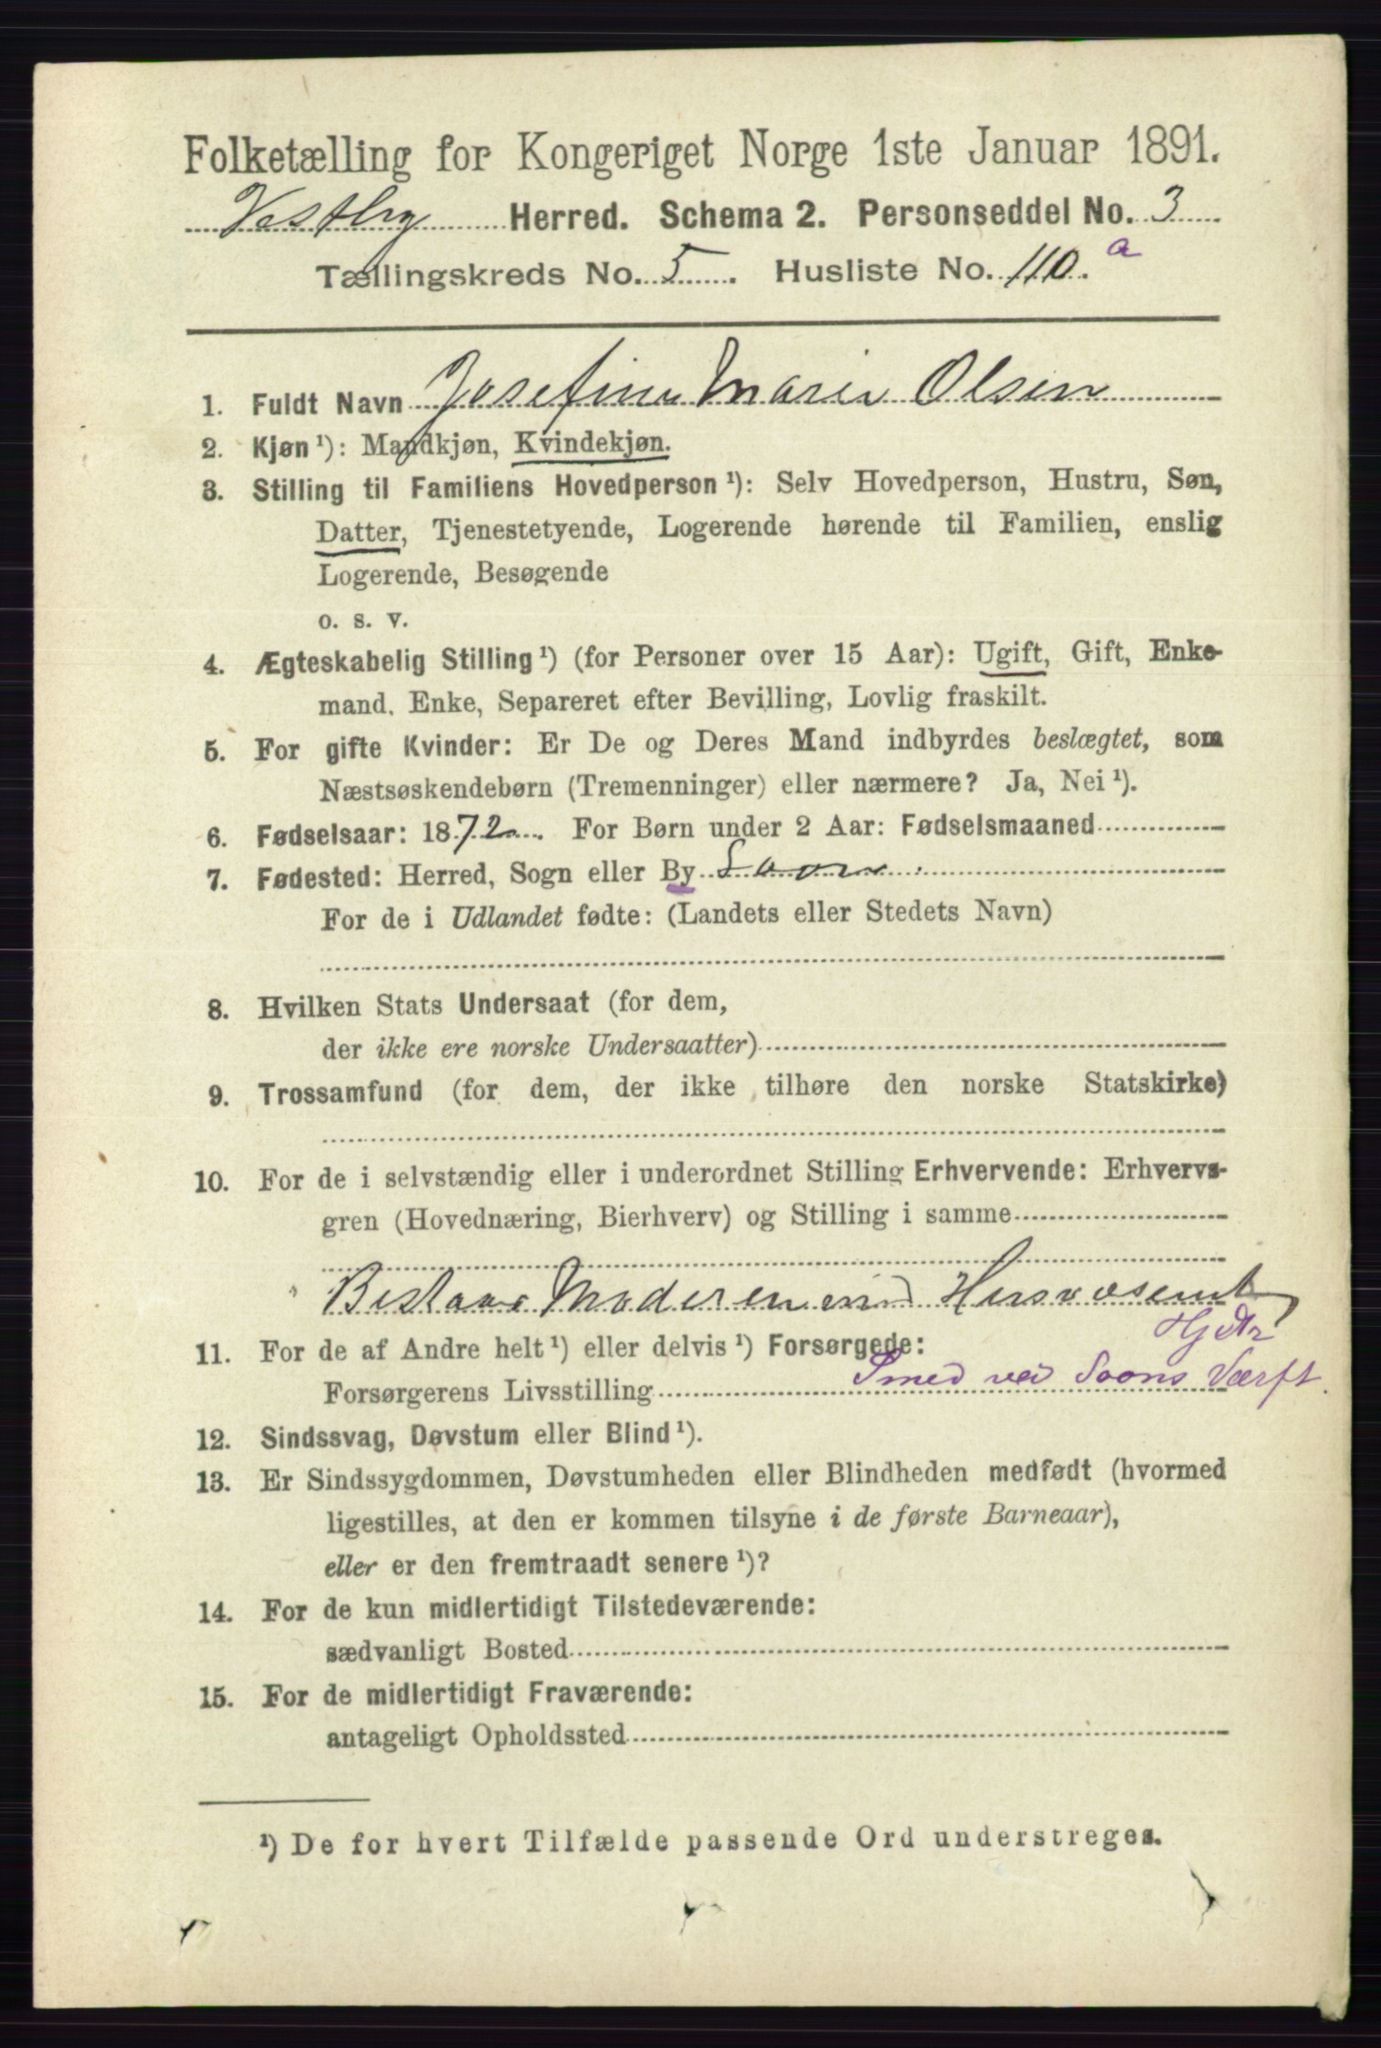 Folketælling for Kongeriget Norge 1ste Januar 1891.
Vestby Herred. Schema 2. Personseddel No. 3
Tællingskreds No. 5. Husliste No. 110. a
1. Fuldt Navn Josefine Marie Olsen
2. Kjøn ¹): Mandkjøn, Kvindekjøn.
3. Stilling til Familiens Hovedperson ¹): Selv Hovedperson, Hustru, Søn,
Datter, Tjenestetyende, Logerende hørende til Familien, enslig
Logerende, Besøgende
o. s. v.
4. Ægteskabelig Stilling ¹) (for Personer over 15 Aar): Ugift, Gift, Enke-
mand. Enke, Separeret efter Bevilling, Lovlig fraskilt.
5. For gifte Kvinder: Er De og Deres Mand indbyrdes beslægtet, som
Næstsøskendebørn (Tremenninger) eller nærmere? Ja, Nei ¹).
6. Fødselsaar: 1872. For Børn under 2 Aar: Fødselsmaaned
7. Fødested: Herred, Sogn eller By Soon
For de i Udlandet fødte: (Landets eller Stedets Navn)
8. Hvilken Stats Undersaat (for dem,
der ikke ere norske Undersaatter)
9. Trossamfund (for dem, der ikke tilhøre den norske Statskirke)
10. For de i selvstændig eller i underordnet Stilling Erhvervende: Erhvervs-
gren (Hovednæring, Bierhverv) og Stilling i samme
Bestaar Moderen med Husvæsenet
Hj dtr
11. For de af Andre helt ¹) eller delvis ¹) Forsørgede:
Forsørgerens Livsstilling Smed ved Soons Værft.
12. Sindssvag, Døvstum eller Blind ¹).
13. Er Sindssygdommen, Døvstumheden eller Blindheden medfødt (hvormed
ligestilles, at den er kommen tilsyne i de første Barneaar),
eller er den fremtraadt senere ¹)?
14. For de kun midlertidigt Tilstedeværende:
sædvanligt Bosted
15. For de midlertidigt Fraværende:
antageligt Opholdssted
¹) De for hvert Tilfælde passende Ord understreges.